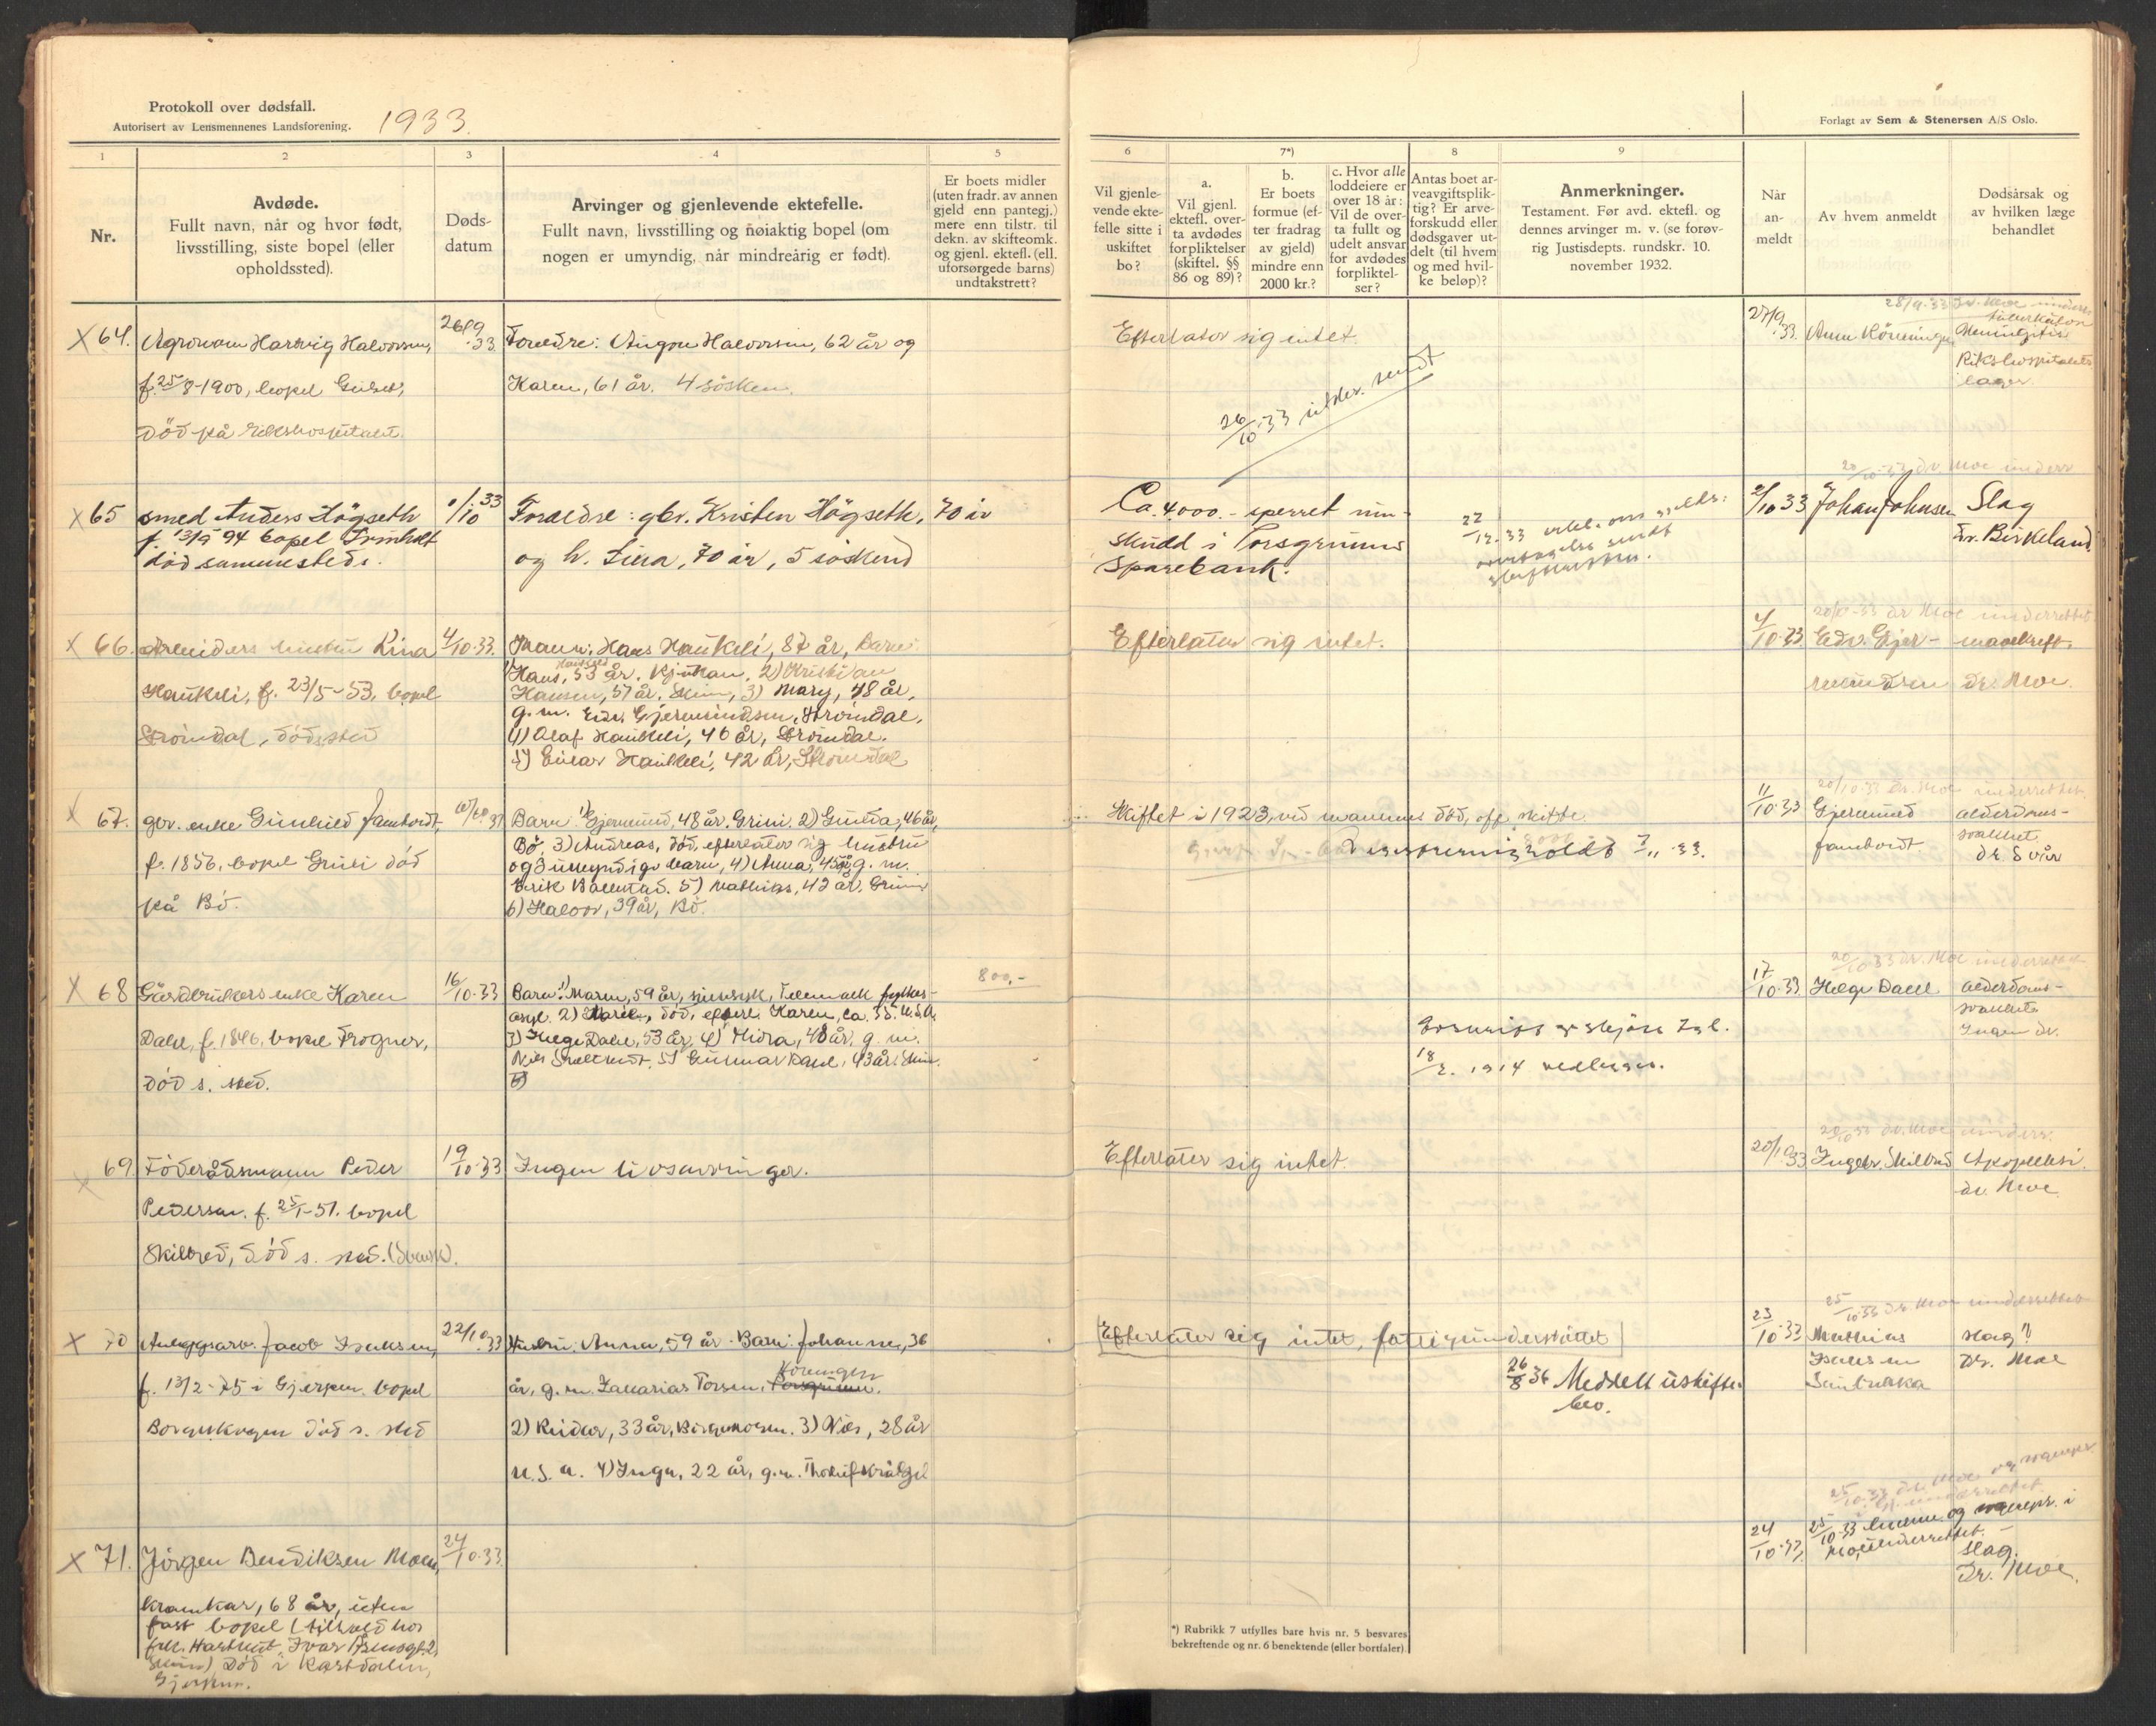 Protokoll over dødsfall.
Autorisert av Lensmennenes Landsforening. 1933.
Forlagt av Sem & Stenersen A/S Oslo.
1 2 3 4 5
Nr.
Avdøde.
Fullt navn, når og hvor født,
livsstilling, siste bopel (eller
opholdssted).
Døds-
datum
Arvinger og gjenlevende ektefelle.
Fullt navn, livsstilling og nøiaktig bopel (om
nogen er umyndig, når mindreårig er født).
Er boets midler
(uten fradr. av annen
gjeld enn pantegj.)
mere enn tilstr. til
dekn. av skifteomk.
og gjenl. ektefl. (ell.
uforsørgede barns)
undtakstrett?
6 7*) 8 9
Vil gjenle-
vende ekte-
felle sitte i
uskiftet
bo?
a.
Vil gjenl.
ektefl. over-
ta avdødes
forpliktelser
(skiftel. §§
86 og 89)?
b.
Er boets
formue (ef-
ter fradrag
av gjeld)
mindre enn
2000 kr.?
c. Hvor alle
loddeiere er
over 18 år:
Vil de over-
ta fullt og
udelt ansvar
for avdødes
forpliktel-
ser?
Antas boet ar-
veavgiftsplik-
tig? Er arve-
forskudd eller
dødsgaver ut-
delt (til hvem
og med hvil-
ke beløp)?
Anmerkninger.
Testament. Før avd. ektefl. og
dennes arvinger m. v. (se forøv-
rig Justisdepts. rundskr. 10.
november 1932.
Når
an-
meldt
Av hvem anmeldt
Dødsårsak og
av hvilken læge
behandlet
X 64. Agronom Hartvig Halvorsen,
f. 25/8-1900, bopel
Död på rikshospitalet.
26/9.33.
Foreldre: Halvorsen, 62 år og
Karen, 61 år. 4 sösken.
Efterlater sig intet.
26/10.33 sendt
27/9.33
Meningitis
Rikshospitalets
læger.
X 65 smed Anders Högseth
f. 13/5 94 bopel
död sammesteds.
1/10 33
Foreldre: gbr. Kristen Högseth, 70 år
og h. Lina, 70 år, 5 söskend
Ca. 4.000.- sperret inn-
skudd i Porsgrunns
Sparebank.
2/10 33 Johan Johnsen
Slag
Dr. Birkeland.
X 66. Arbeiders hustru Lina
Haukeli, f. 23/5-53, bopel
Ströindal, dödssted
4/10.33.
Mann: Hans Haukeli, 87 år, Barn:
1) Hans, 53 år, Rjukan, 2) Kristian
Hansen, 51 år, Skien, 3) Mary, 48 år,
g.m. Edv. Gjermundsen, Ströindal,
4) Olaf Haukeli, 46 år, Ströindal.
5) Einar Haukeli, 42 år, Ströindal
Efterlater sig intet.
4/10.33
20/10-33 Dr Moe underrettet
Edv. Gjer-
mundsen
mavekreft.
dr. Moe.
X 67. gbr. enke Gunhild Jamtvedt,
f. 1856, bopel Grini död
på Bö.
Barn: 1) Gjermund, 48 år. Grini. 2) Gunda, 46 år,
Bö, 3) Andreas, död, efterlater sig hustru
og 3 umyndige barn, 4) Anna, g.m.
Erik 5) Mathias, 42 år, Grini
6) Halvor, 39 år, Bö.
Skiftet i 1923, ved mannens död, off. skifte.
11/10.33
Gjermund
Jamtvedt.
alderdoms-
svakhet.
dr. Svår
X 68 Gårdbrukers enke Karen
Dahl, f. 1846, bopel Frogner,
död s. sted.
16/10.33
Barn: 1) Maren, 59 år, sinnsyk, Telemark fylkes-
asyl. 2) Marie, död, efterl. Karen, ca. 35. U.S.A.
3) Helge Dahl, 53 år, 4) Hidra, 48 år, g.m.
5) Gunnar Dahl, 43 år. Skien.
6)
800,-
18/2. 1914 vedlegges.
17/10.33. Helge Dahl
alderdoms-
svakhet
Ingen dr.
X 69. Föderådsmann Peder
Pedersen. f. 25/1-51. bopel
Skilbred, död s. sted.
19/10.33
Ingen livsarvinger.
Efterlater sig intet.
20/10.33 Ingebr. Skilbred
Apopleksi.
dr. Moe
X 70 Anleggsarb. Jacob Isaksen,
f. 13/2-75 i Gjerpen. bopel
död s. sted
22/10.33
Hustru: Anna, 59 år. Barn: Johanne, 36
år, g.m. Zakarias Torsen, Porsgrunn.
2) Reidar, 33 år, 3) Nils, 28 år
U.S.A. 4) Inga, 22 år, g.m.
Efterlater sig intet, fattigunderstöttet
26/8 36 Meddelt uskifte-
bev.
23/10.33
25/10.33 Dr Moe underrettet
Mathias
Isaksen
Slag
Dr. Moe
X 71. Jörgen Bendiksen Moen,
kramkar, 68 år, uten
fast bopel (tilhold hos
Skien) Död i
Gjerpen.
24/10.33
24/10.33
25/10.33
slag.
Dr. Moe.
*) Rubrikk 7 utfylles bare hvis nr. 5 besvares
bekreftende og nr. 6 benektende (eller bortfaler).